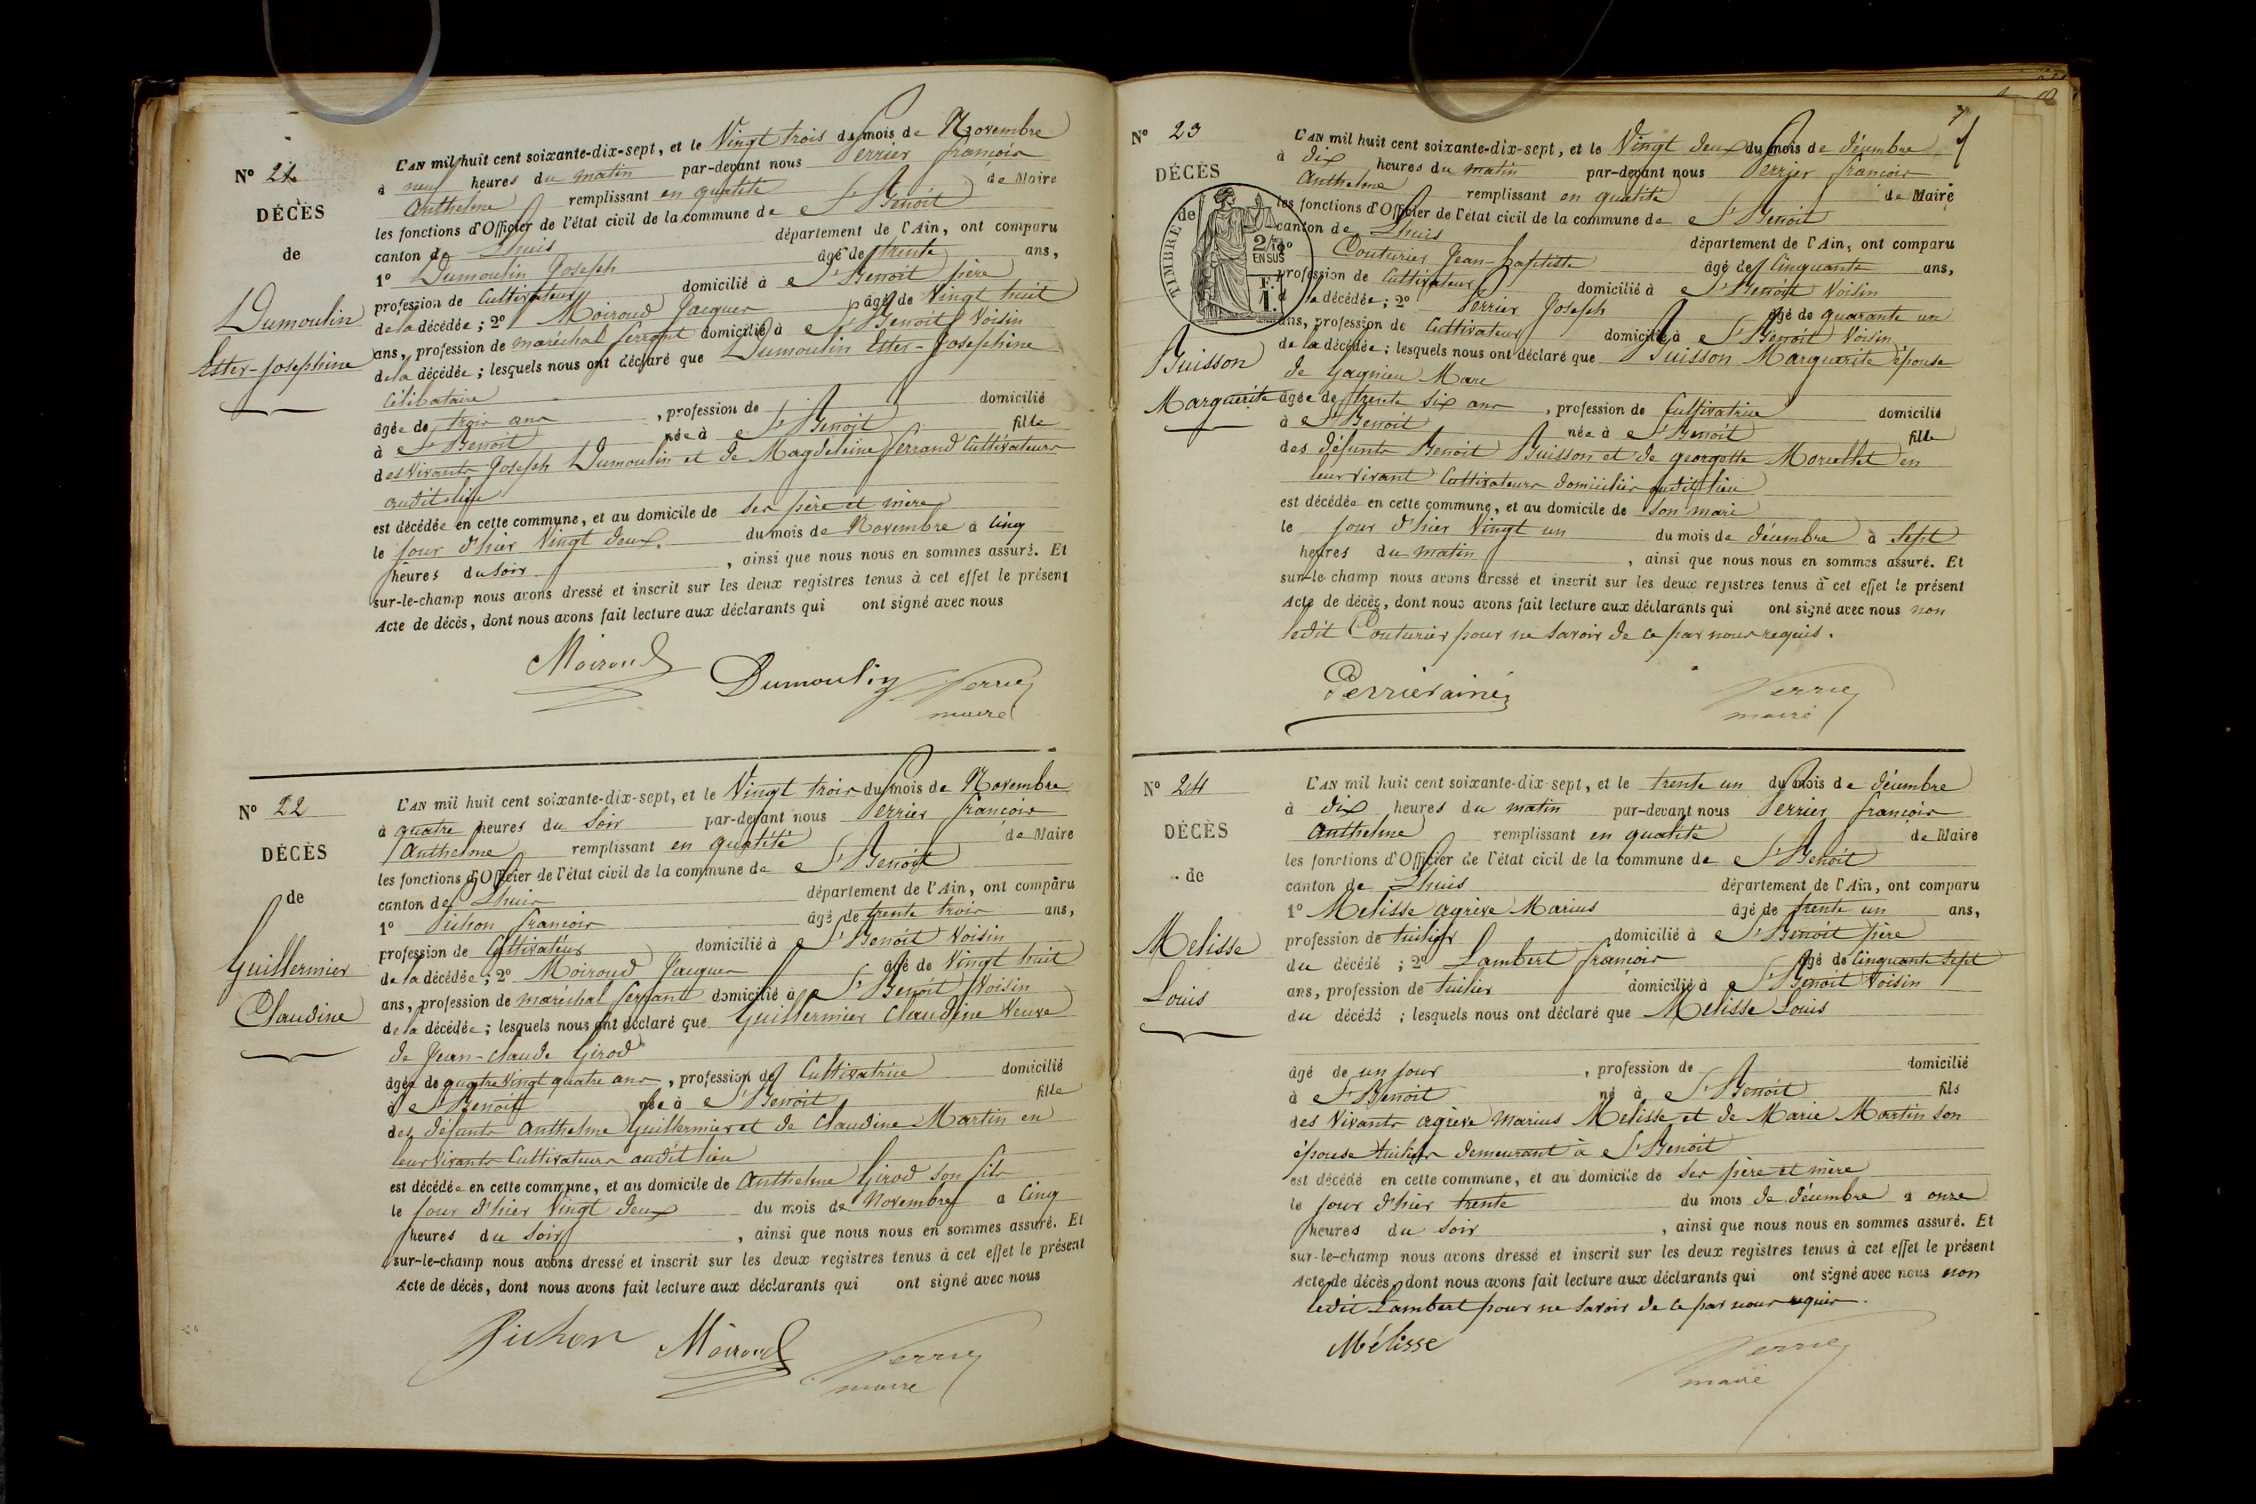 Nº 21
DÉCÈS
de
Dumoulin
Ester-Josephine
L'AN mil huit cent soixante-dix-sept, et le Vingt trois du mois de Novembre
à neuf heures du matin par-devant nous Perrier françois
Anthelme remplissant en qualité de Maire
les fonctions d'Officier de l'état civil de la commune de St Benoît
canton de Lhuis département de l'Ain, ont comparu
1º Dumoulin Joseph âgé de trente ans,
profession de Cultivateur domicilié à St Benoît père
de la décédée ; 2º Moiroud Jacques âgé de Vingt huit
ans, profession de maréchal ferrant domicilié à St Benoît Voisin
de la décédée ; lesquels nous ont déclaré que Dumoulin Ester-Josephine
Célibataire
âgée de trois ans , profession de domicilié
à St Benoît née à St Benoît fille
des Vivants Joseph Dumoulin et de Magdeleine Ferrand Cultivateurs
audit lieu
est décédée en cette commune, et au domicile de ses père et mère
le jour d'hier Vingt deux du mois de Novembre à Cinq
heures du soir , ainsi que nous nous en sommes assuré. Et
sur-le-champ nous avons dressé et inscrit sur les deux registres tenus à cet effet le présent
Acte de décès, dont nous avons fait lecture aux déclarants qui ont signé avec nous
Moiroud Dumoulin Perrier
maire
Nº 22
DÉCÈS
de
Guillermier
Claudine
L'AN mil huit cent soixante-dix-sept, et le Vingt trois du mois de Novembre
à quatre heures du soir par-devant nous Perrier françois
Anthelme remplissant en qualité de Maire
les fonctions d'Officier de l'état civil de la commune de St Benoît
canton de Lhuis département de l'Ain, ont comparu
1º Pichon françois âgé de trente trois ans,
profession de Cultivateur domicilié à St Benoît Voisin
de la décédée ; 2º Moiroud Jacques âgé de Vingt huit
ans, profession de maréchal ferrant domicilié à St Benoît Voisin
de la décédée ; lesquels nous ont déclaré que Guillermier Claudine Veuve
de Jean-Claude Girod
âgée de quatre Vingt quatre ans , profession de Cultivatrice domicilié
à St Benoît née à St Benoît fille
des défunts Anthelme Guillermier et de Claudine Martin en
leur vivants Cultivateurs audit lieu
est décédée en cette commune, et au domicile de Anthelme Girod son fils
le jour d'hier Vingt deux du mois de Novembre à Cinq
heures du soir , ainsi que nous nous en sommes assuré. Et
sur-le-champ nous avons dressé et inscrit sur les deux registres tenus à cet effet le présent
Acte de décès, dont nous avons fait lecture aux déclarants qui ont signé avec nous
Pichon Moiroud Perrier
maire
7
Nº 23
DÉCÈS
de
TIMBRE
2/10
EN SUS
F.
1.
Buisson
Marguerite
L'AN mil huit cent soixante-dix-sept, et le Vingt deux du mois de décembre
à dix heures du matin par-devant nous Perrier françois
Anthelme remplissant en qualité de Maire
les fonctions d'Officier de l'état civil de la commune de St Benoît
canton de Lhuis département de l'Ain, ont comparu
1º Couturier Jean-baptiste âgé de Cinquante ans,
profession de Cultivateur domicilié à St Benoît Voisin
de la décédée ; 2º Perrier Joseph âgé de quarante un
ans, profession de Cultivateur domicilié à St Benoît Voisin
de la décédée ; lesquels nous ont déclaré que Buisson Marguerite épouse
de Gagnieu Marc
âgée de trente six ans , profession de Cultivatrice domicilié
à St Benoît née à St Benoît fille
des défunts Benoît Buisson et de georgette Morellet en
leur vivant Cultivateurs domiciliés audit lieu
est décédée en cette commune, et au domicile de son mari
le jour d'hier Vingt un du mois de décembre à Sept
heures du matin , ainsi que nous nous en sommes assuré. Et
sur-le-champ nous avons dressé et inscrit sur les deux registres tenus à cet effet le présent
Acte de décès, dont nous avons fait lecture aux déclarants qui ont signé avec nous non
ledit Couturier pour ne savoir de ce par nous requis.
Perrier ainé Perrier
maire
Nº 24
DÉCÈS
de
Melisse
Louis
L'AN mil huit cent soixante-dix-sept, et le trente un du mois de décembre
à dix heures du matin par-devant nous Perrier françois
Anthelme remplissant en qualité de Maire
les fonctions d'Officier de l'état civil de la commune de St Benoît
canton de Lhuis département de l'Ain, ont comparu
1º Melisse agrève Marius âgé de trente un ans,
profession de tuilier domicilié à St Benoît père
du décédé ; 2º Lambert françois âgé de Cinquante sept
ans, profession de tuilier domicilié à St Benoît Voisin
du décédé ; lesquels nous ont déclaré que Melisse Louis
âgé de un jour , profession de domicilié
à St Benoît né à St Benoît fils
des Vivants agrève Marius Melisse et de Marie Martin son
épouse tuiliers demeurant à St Benoît
est décédé en cette commune, et au domicile de ses père et mère
le jour d'hier trente du mois de décembre à onze
heures du soir , ainsi que nous nous en sommes assuré. Et
sur-le-champ nous avons dressé et inscrit sur les deux registres tenus à cet effet le présent
Acte de décès, dont nous avons fait lecture aux déclarants qui ont signé avec nous non
ledit Lambert pour ne savoir de ce par nous requis.
Mélisse Perrier
maire